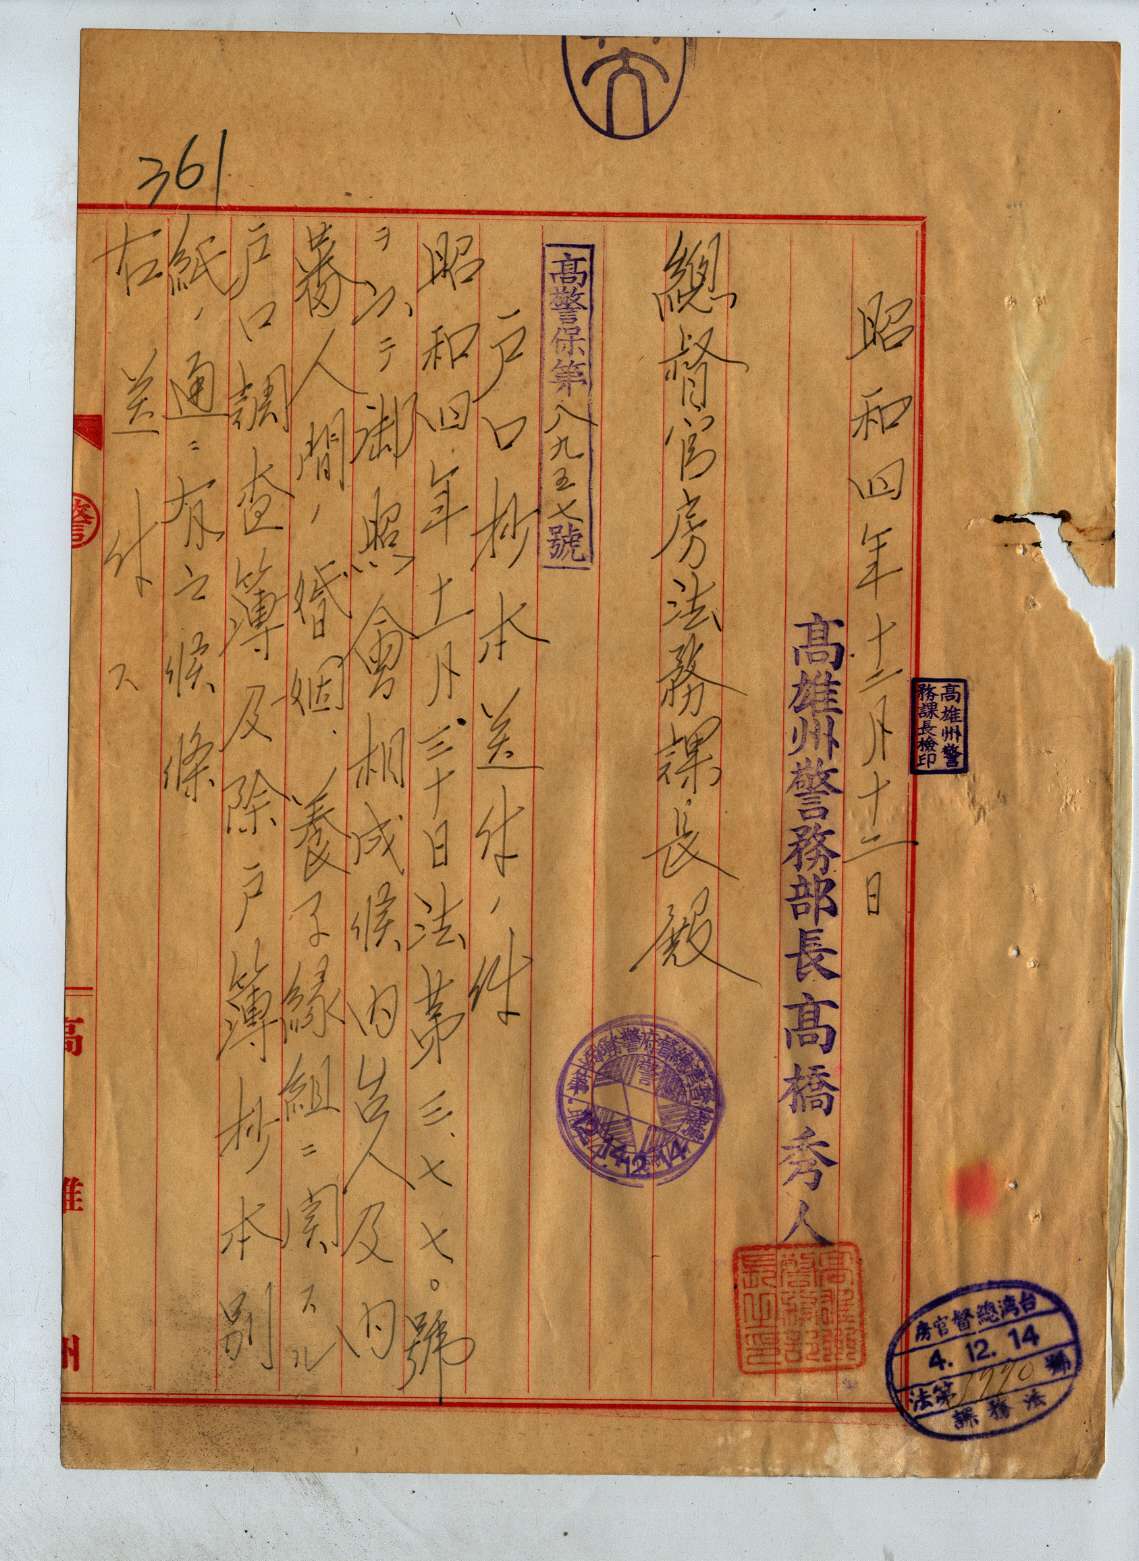 昭和四年十二月十二日
高雄州警務部長高橋秀人
總督官房法務課長殿
高警保第八九五七號
戸口抄本送付ノ件
昭和四年十一月三十日法第三、七七〇號
ヲ以テ御照會相成候内台人及内
蕃人間ノ婚姻、養子縁組ニ関スル
戸口調査簿及除戸簿抄本別
紙ノ通ニ有之候條
右送付ス
361
高雄州警
務課長檢印
台湾總督官房
4.12.14
法第 號
法務課
高雄州